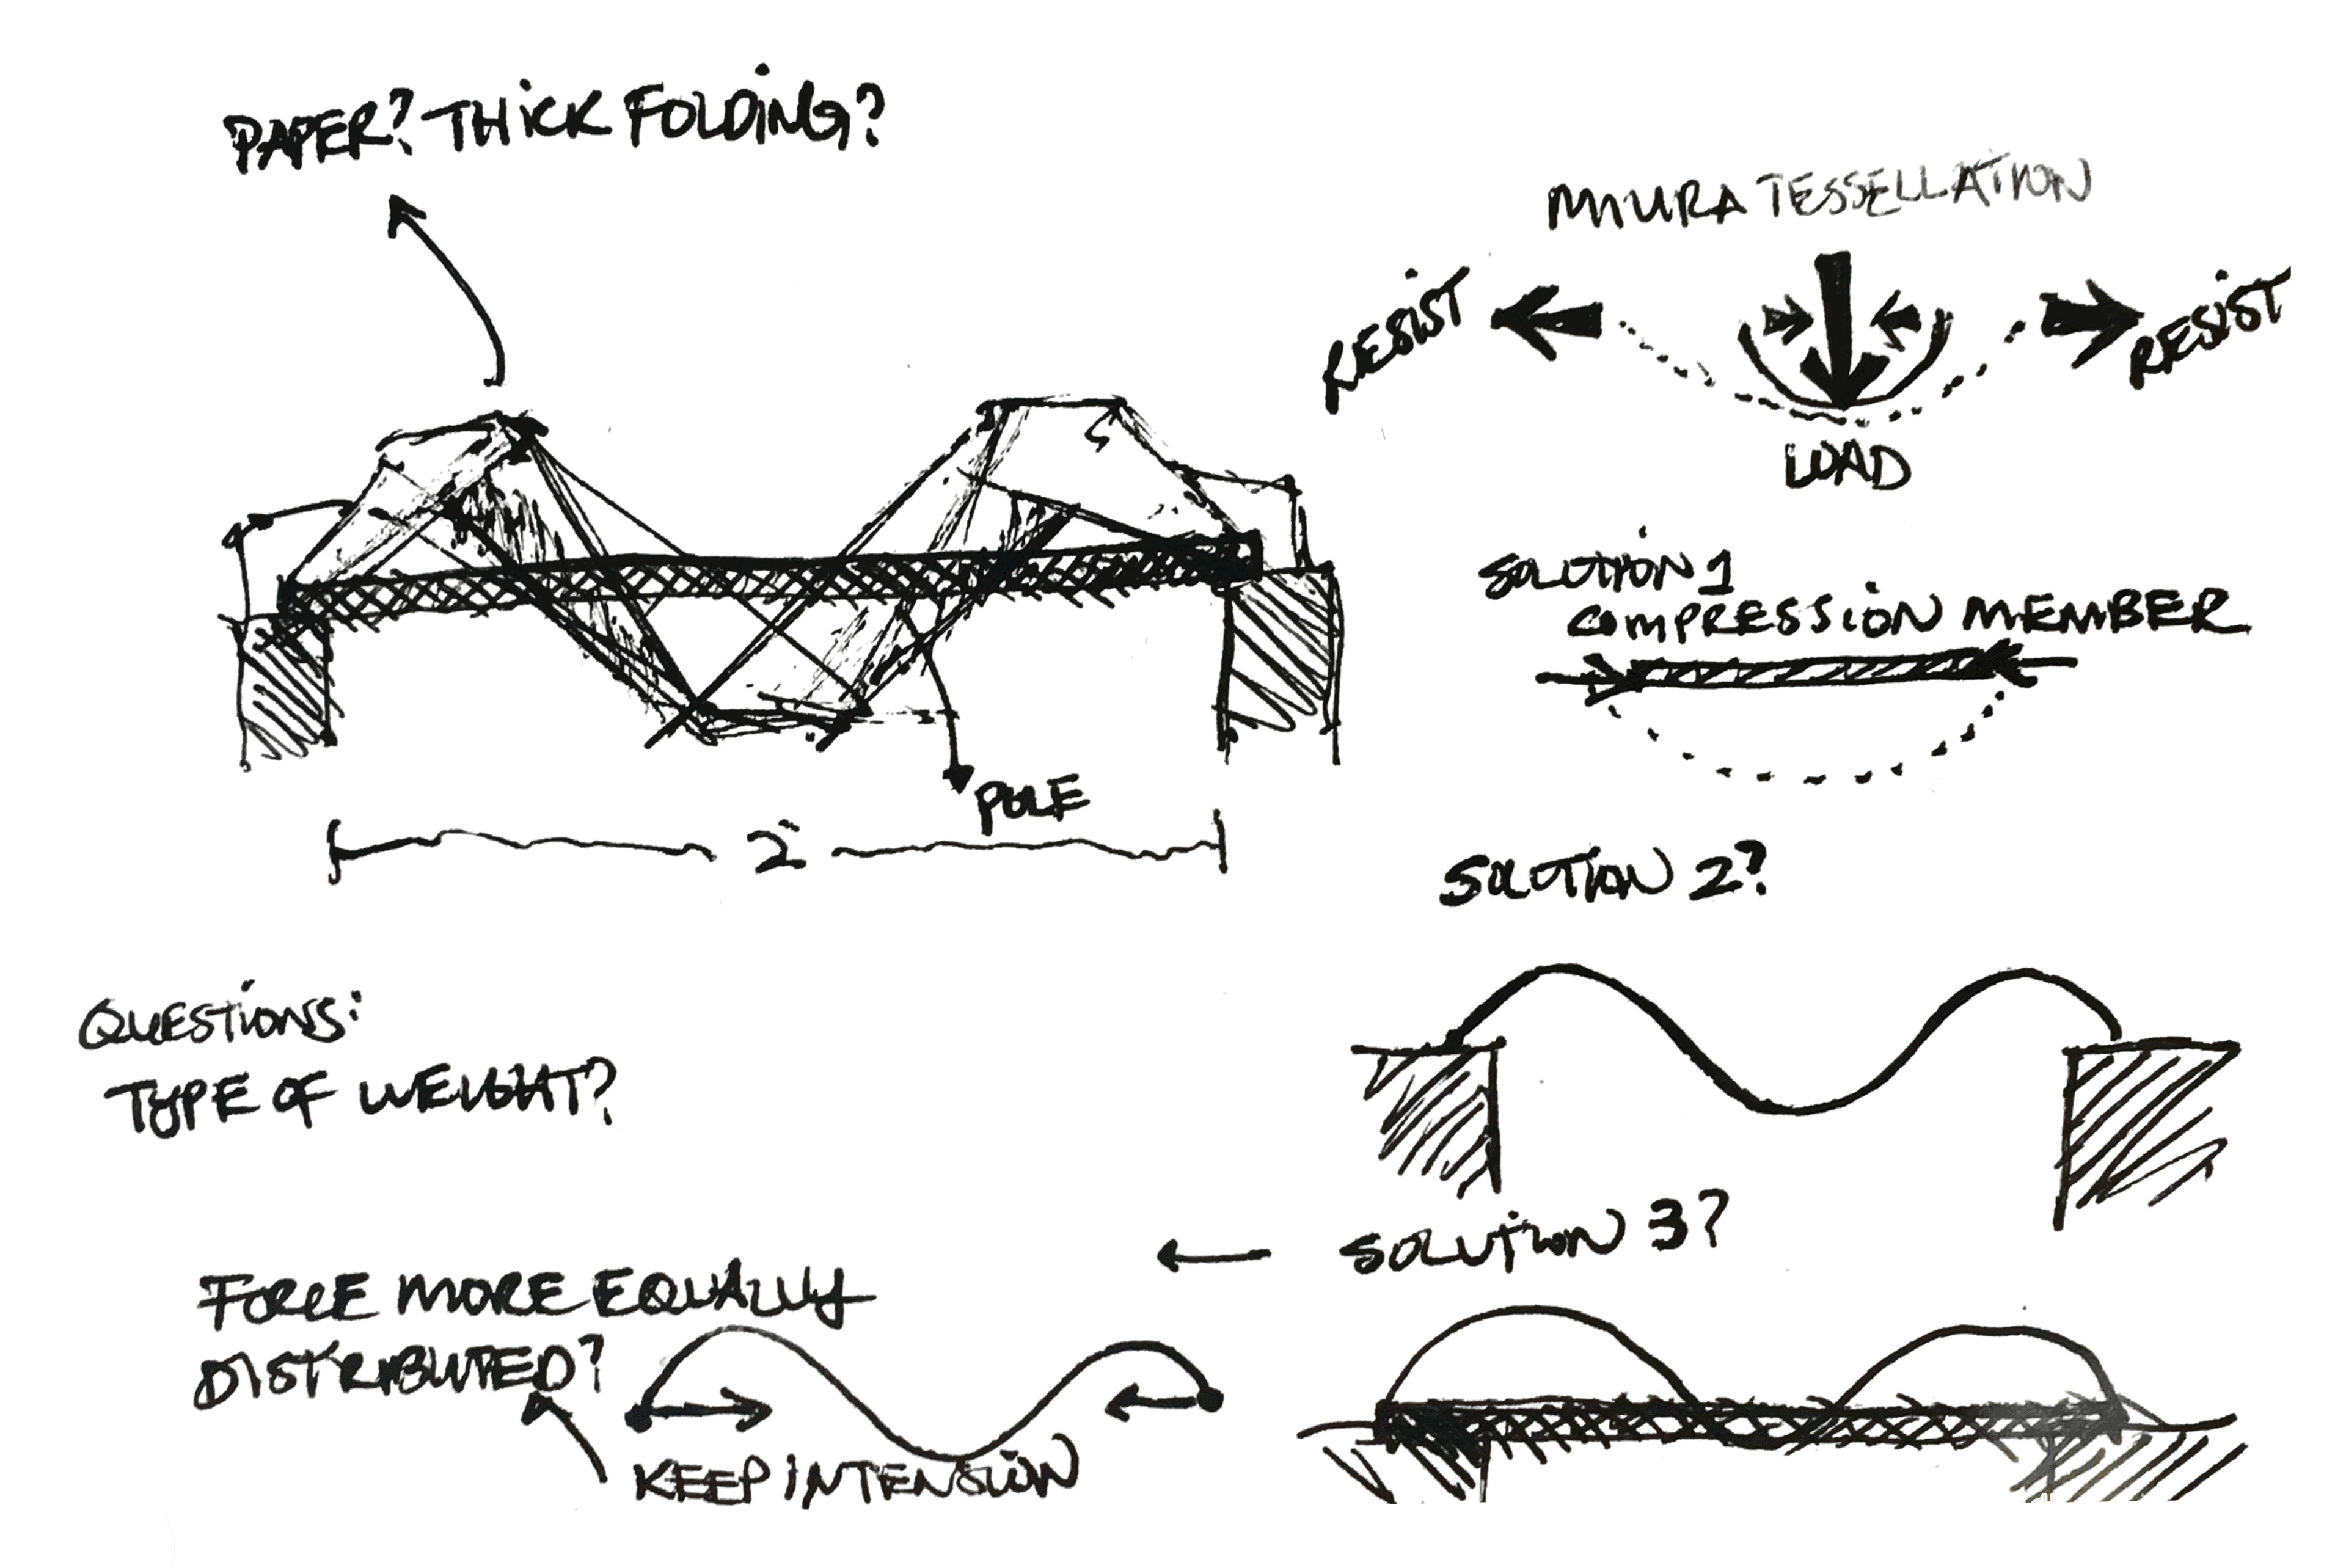 PAPER? THICK FOLDING?
MIURA TESSELLATION
RESIST
RESIST
LOAD
SOLUTION 1
COMPRESSION MEMBER
POLE
2"
SOLUTION 2?
QUESTIONS:
TYPE OF WEIGHT?
SOLUTION 3?
FORCE MORE EQUALLY
DISTRIBUTED?
KEEP IN TENSION